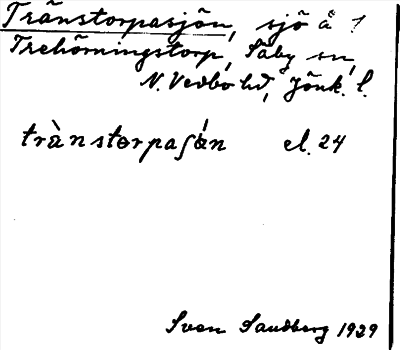 Tränstorpasjön, sjö å
Trehörningstorp, Säby sn,
N. Vedbo hd, Jönk. l.
trànstorpaʃön el. 24
Sven Sandberg 1929